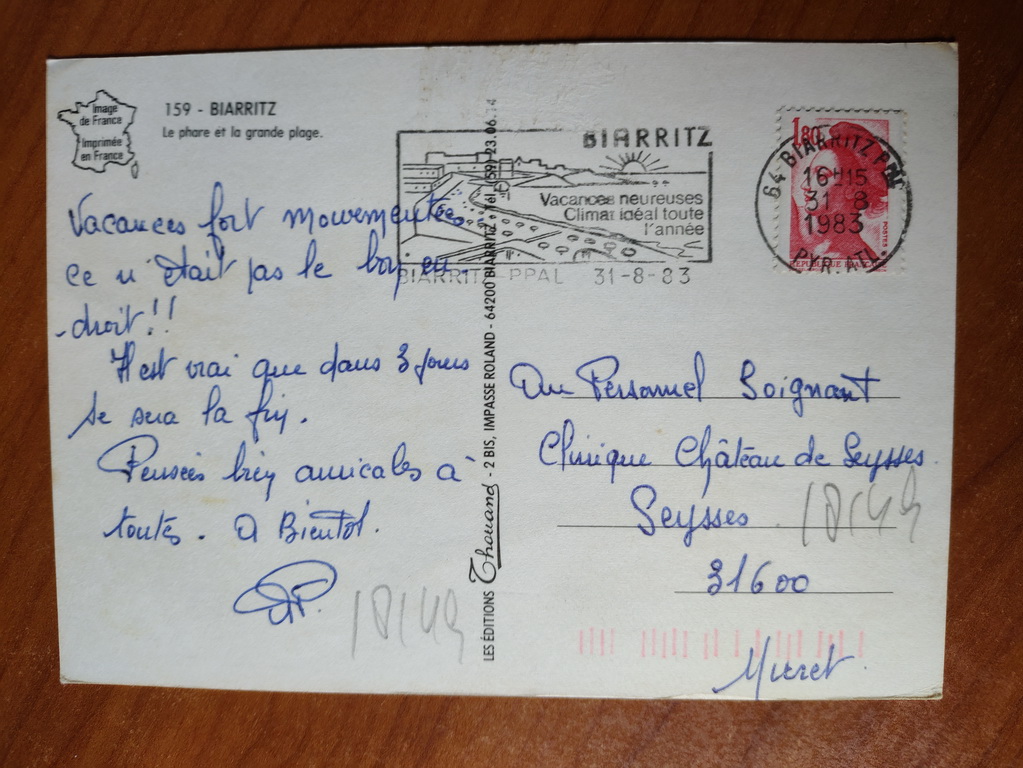 Image
de France
Imprimée
en France
159 - BIARRITZ
Le phare et la grande plage.
BIARRITZ
Vacances heureuses
Climat idéal toute
l'année
BIARRITZ PPAL 31-8-83
1,80
64 BIARRITZ PPAL
16H15
31 8
1983
PYR. ATL.
POSTES
REPUBLIQUE FRANÇAISE
Vacances fort mouvementées
ce n'était pas le bon en-
-droit!!
Il est vrai que dans 3 jours
se sera la fin.
Pensées bien amicales à
toutes. A Bientôt.
LES ÉDITIONS Thouand - 2 BIS, IMPASSE ROLAND - 64200 BIARRITZ - Tél. (59) 23.06.14
Au Personnel Soignant
Clinique Château de Seysses
Seysses
31600
Muret